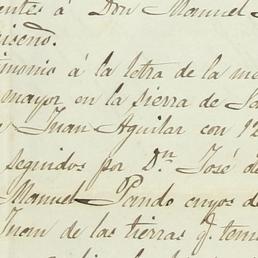 entes á Don Manuel
iseño.
timonio á la letra de la me
mayor en la sierra de S
Juan Aguilar con 12
seguidos por Dn. José de
Manuel Pando cuyos de
Juem de las tierras q. tom